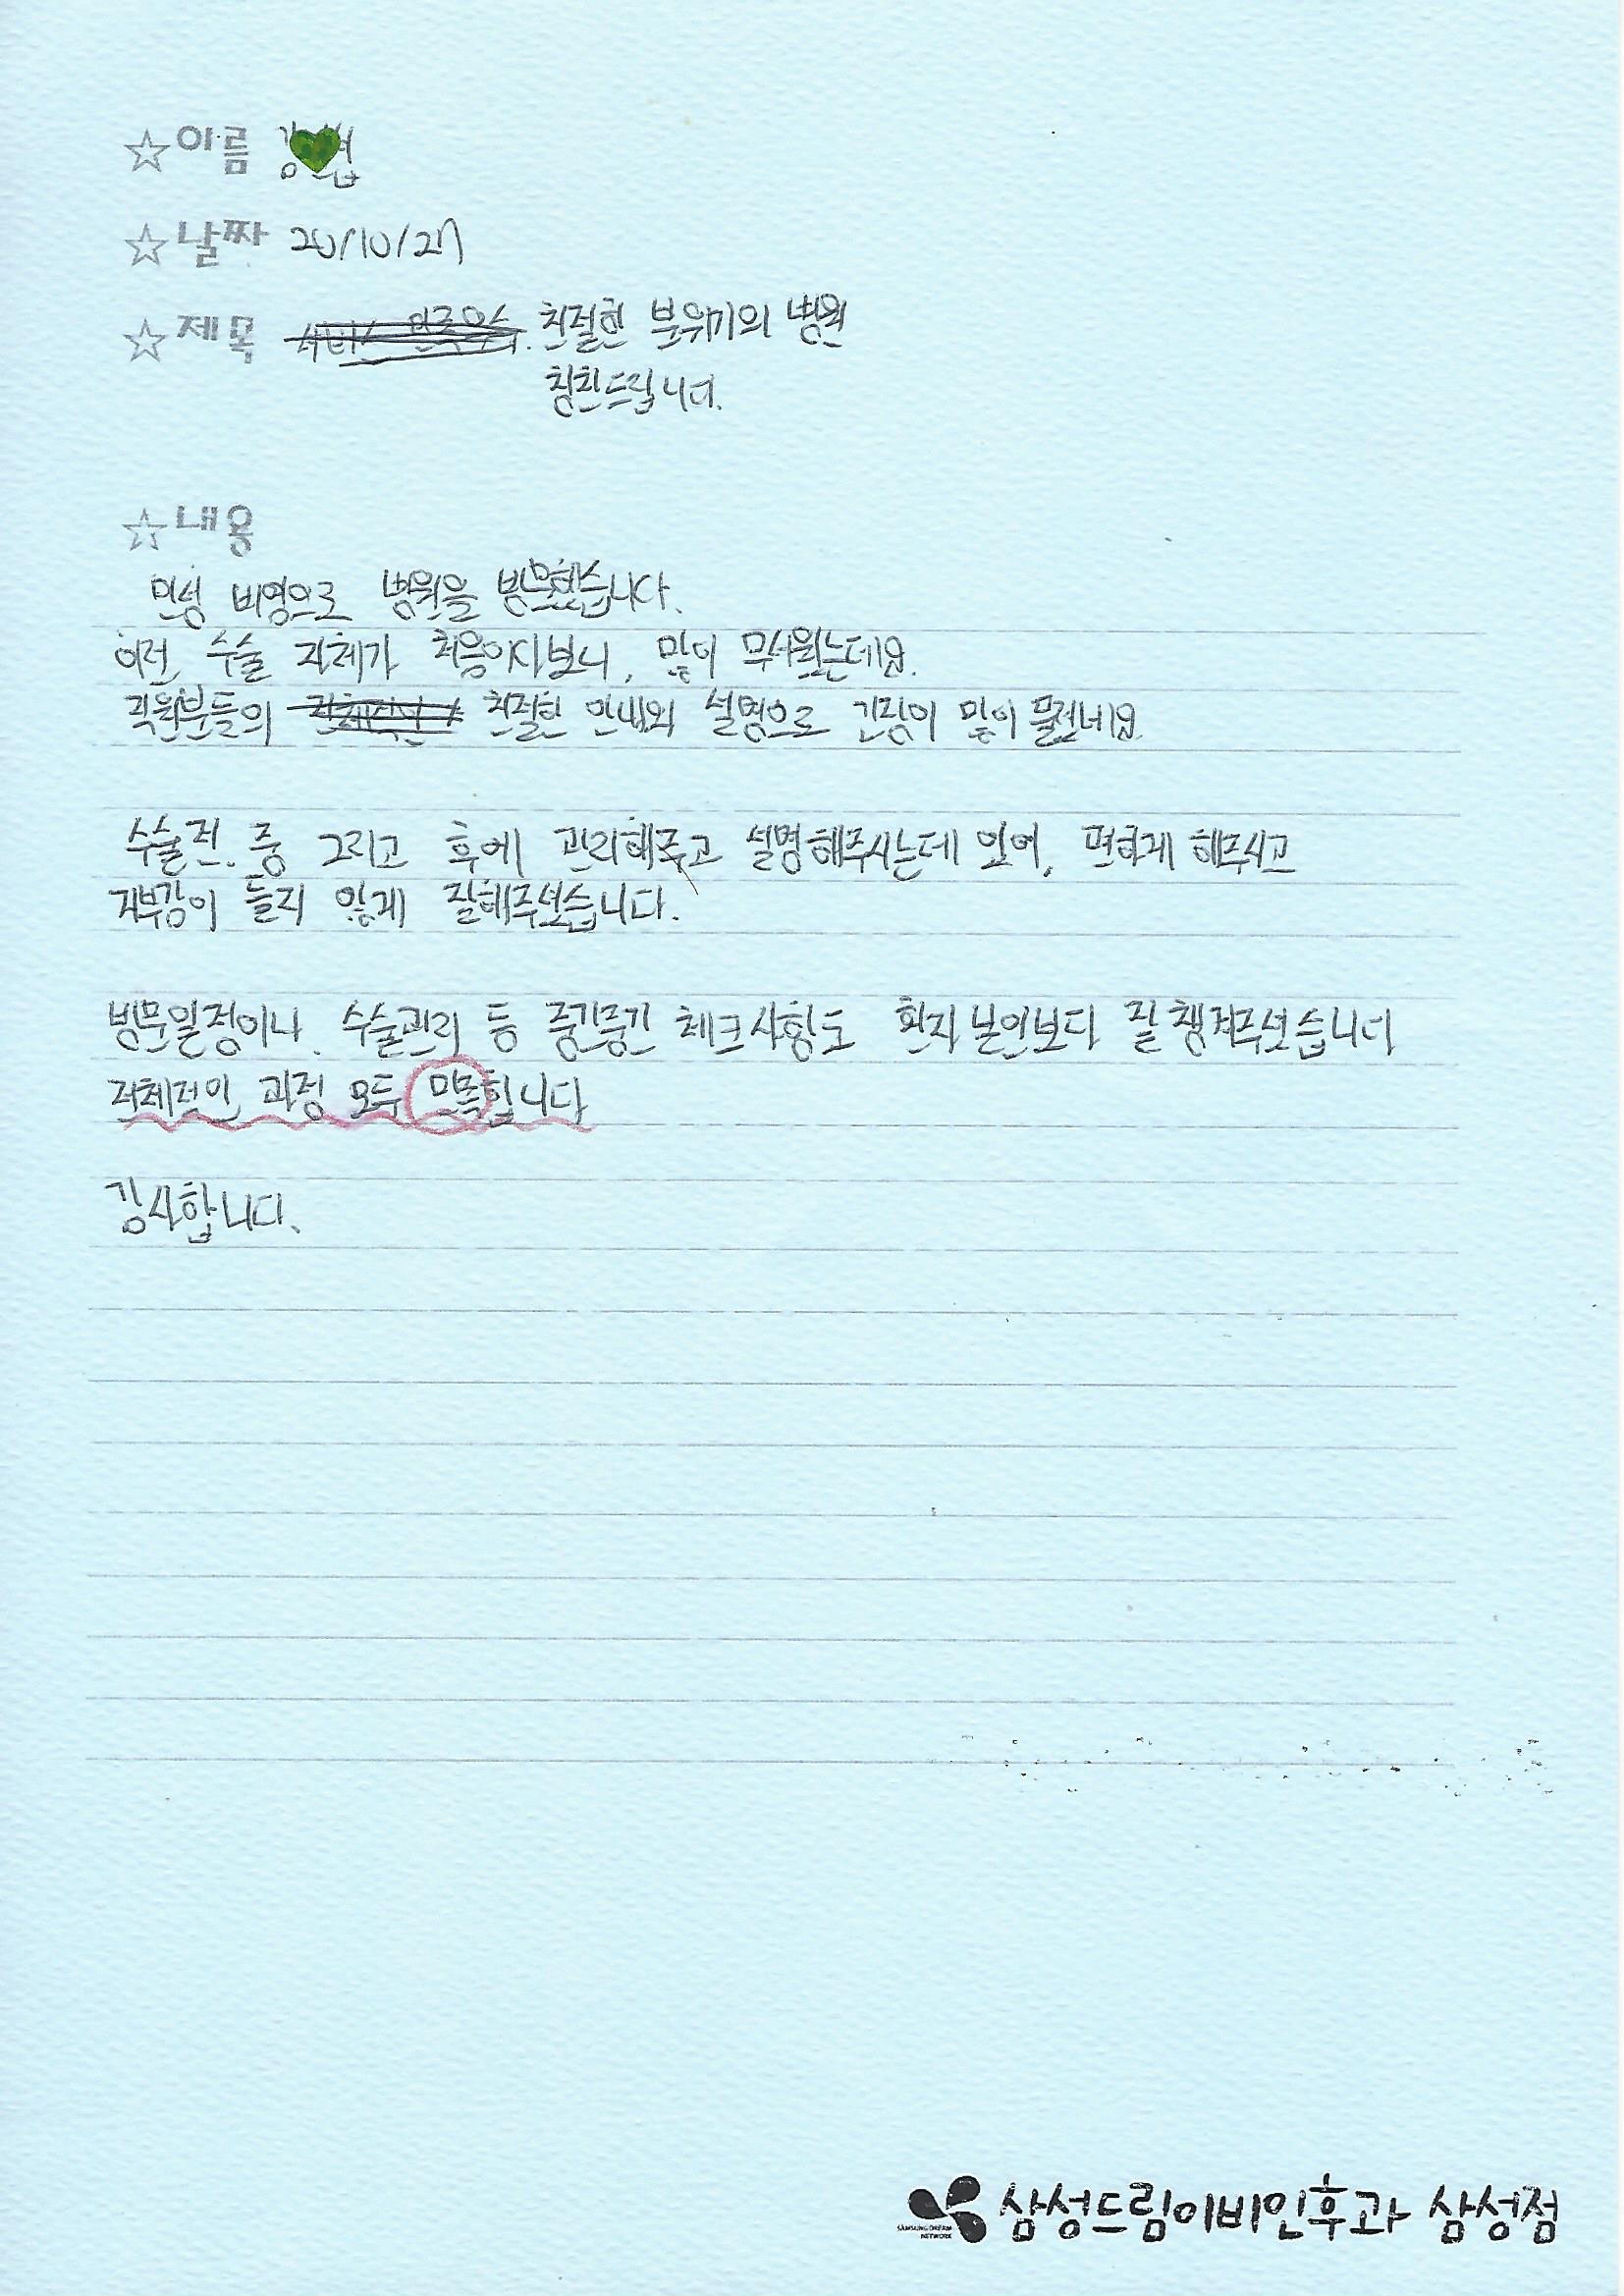 ☆이름 강 섭
☆날짜 20/10/27
☆제목 친절한 분위기의 병원
칭찬드립니다.
☆내용
만성 비염으로 병원을 방문했습니다.
이런 수술 자체가 처음이다보니, 많이 무서웠는데요.
직원분들의 친절한 안내와 설명으로 긴장이 많이 풀렸네요.
수술 전. 중 그리고 후에 관리해주고 설명해주시는데 있어, 편하게 해주시고
거부감이 들지 않게 잘해주셨습니다.
방문일정이나 수술관리 등 중간중간 체크사항도 환자 본인보다 잘 챙겨주셨습니다
전체적인 과정 모두 만족합니다
감사합니다.
SAMSUNG DREAM
NETWORK
삼성드림이비인후과 삼성점